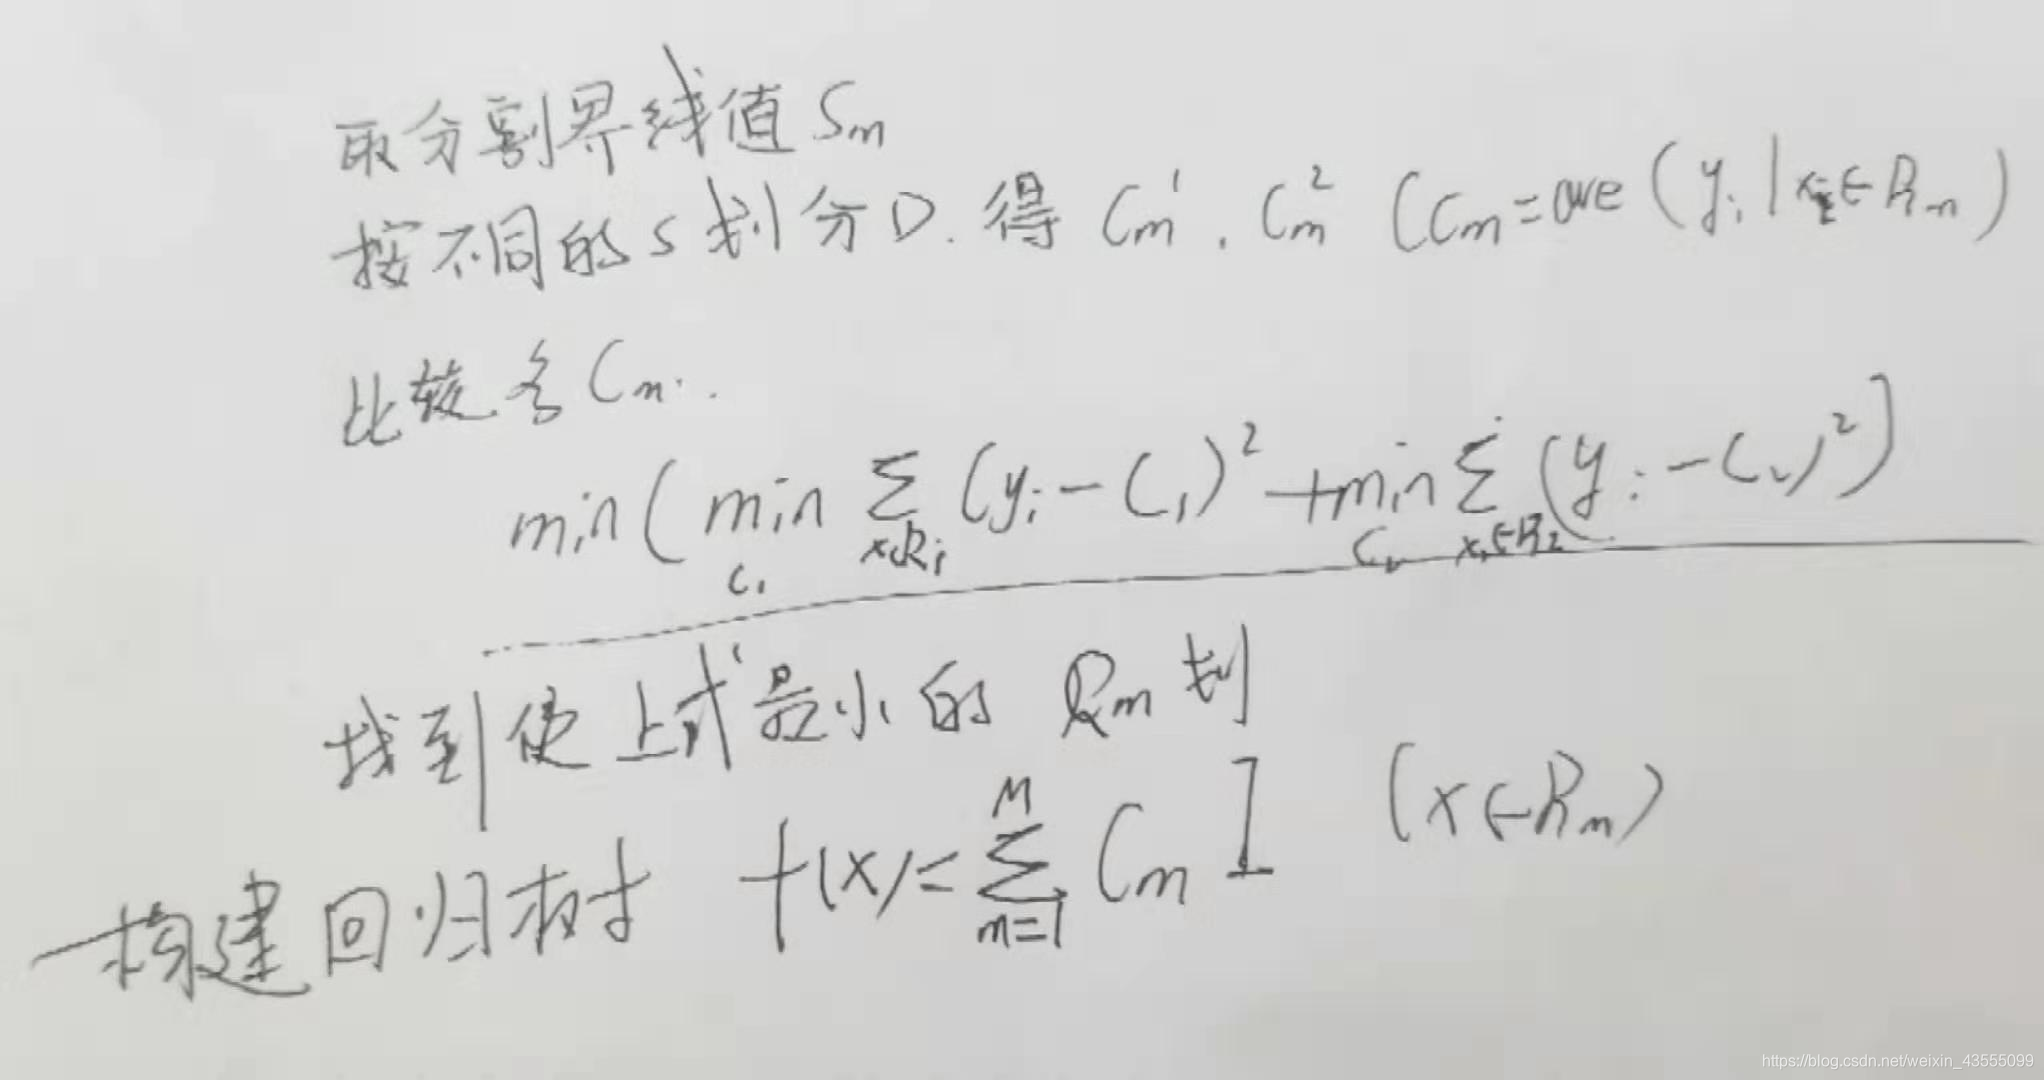 取分割界线值 Sm
按不同的 S 划分 D. 得 Cm¹, Cm² (Cm = ave (yi | xi ∈ Rm)
比较各 Cm.
min( min Σ (yi - C1)² + min Σ (yi - C2)² ]
C1 xi∈R1 C2 xi∈R2
找到使上式最小的 Rm 划
构建回归树 f(x) = Σ Cm I (x ∈ Rm)
M
m=1
https://blog.csdn.net/weixin_43555099